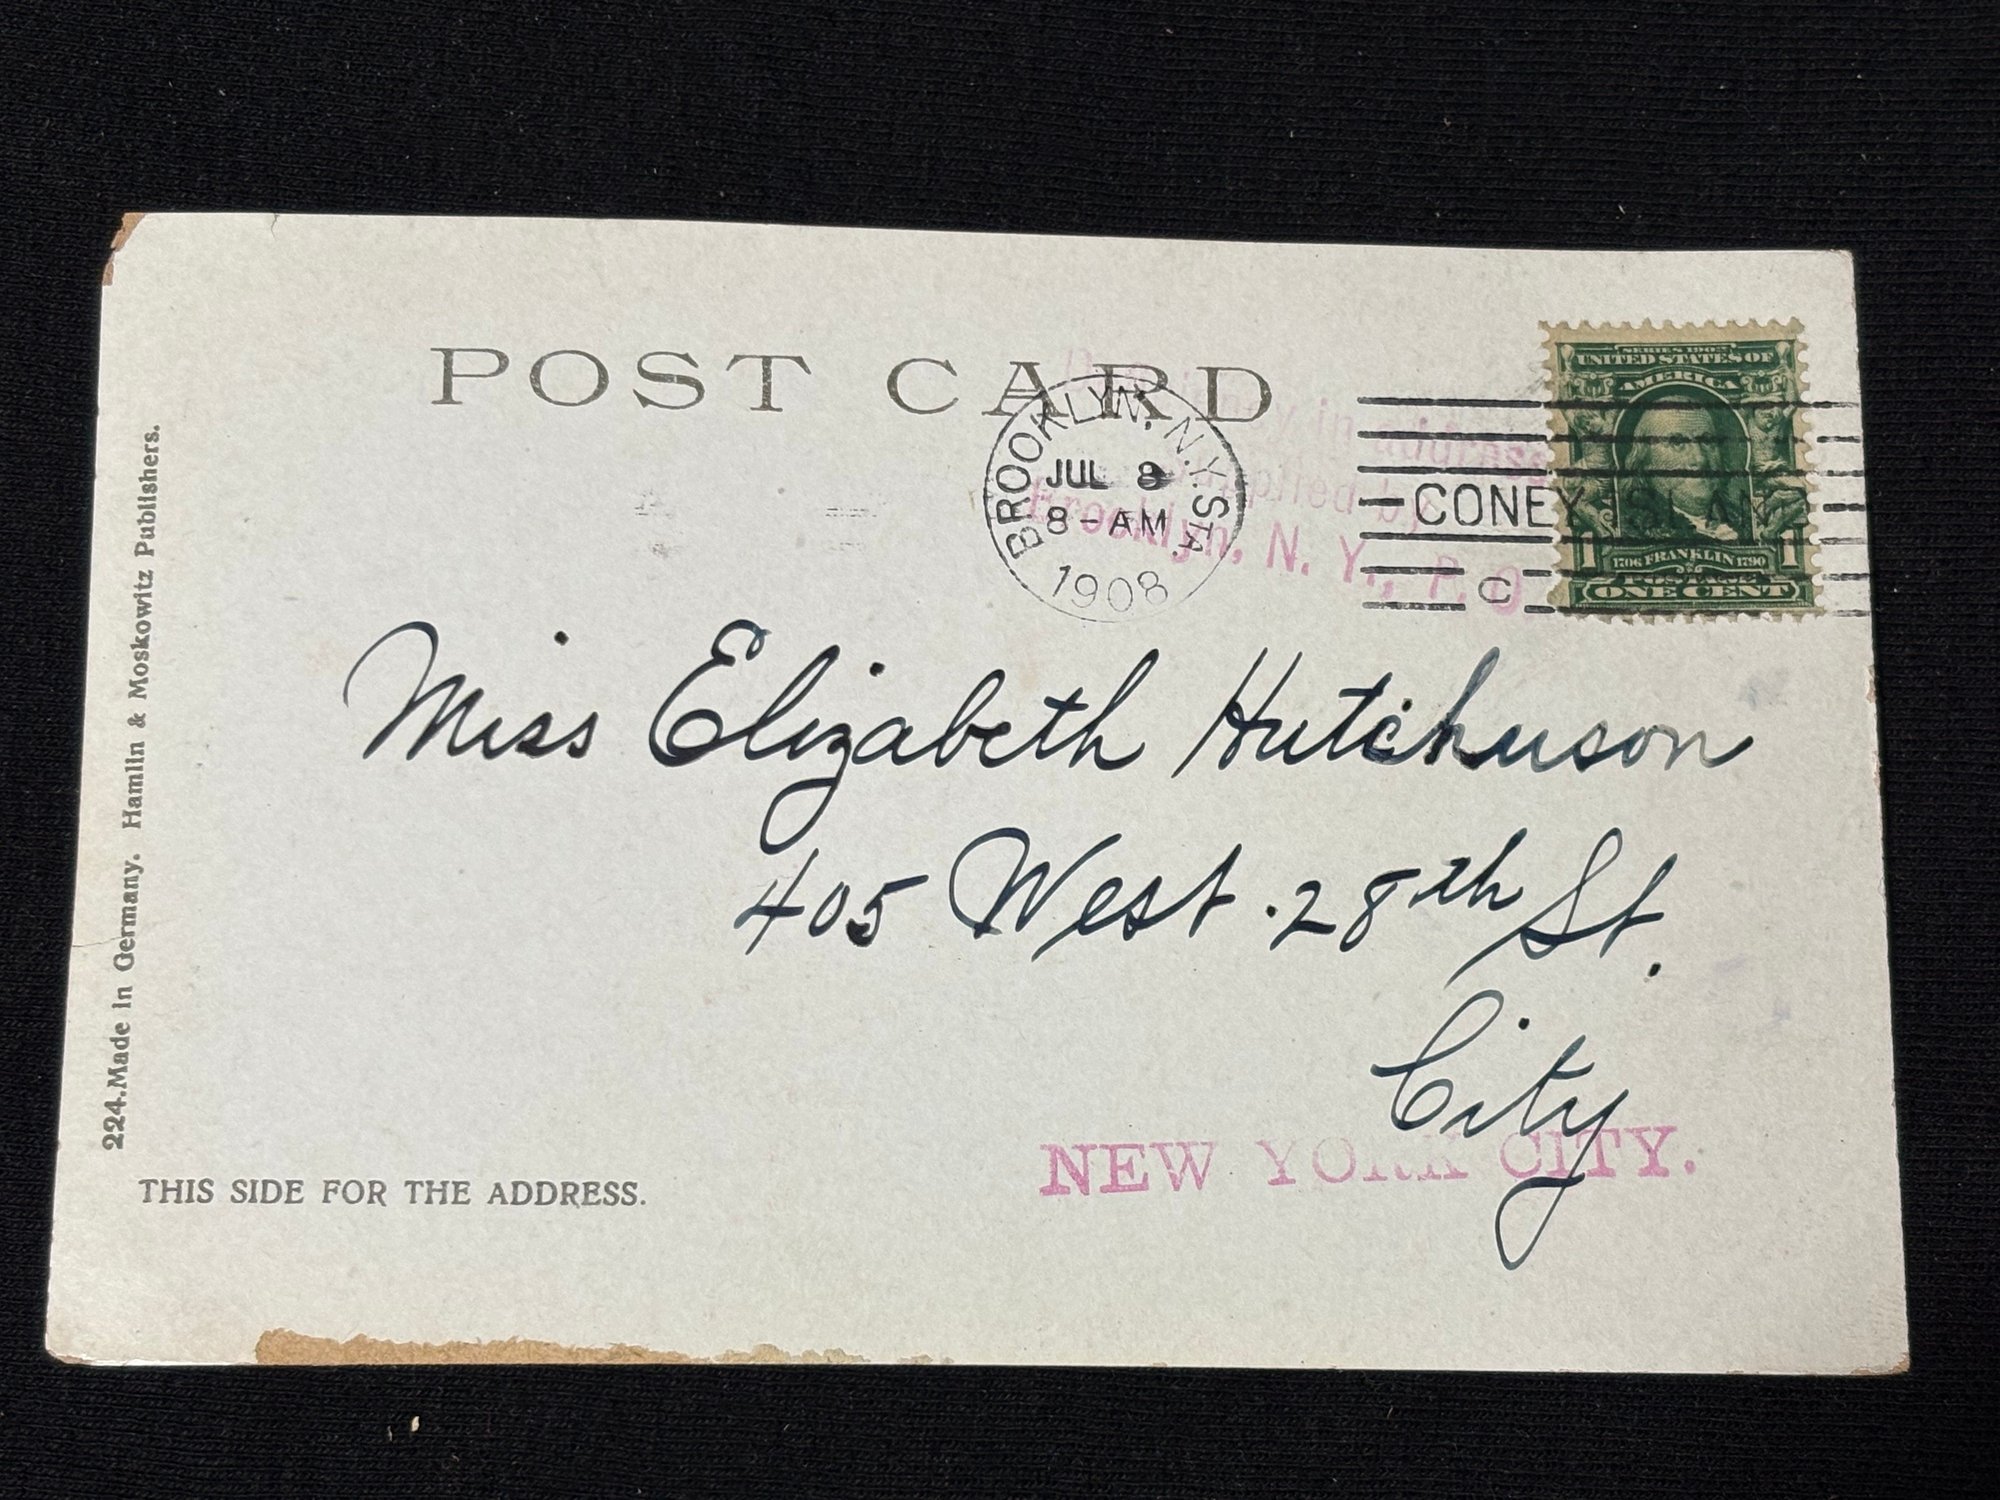 POST CARD
Deficiency in address
supplied by
Brooklyn, N. Y., P. O.
BROOKLYN, N.Y. STA.
JUL 8
8-AM
1908
CONEY ISLAND
C
SERIES 1902
UNITED STATES OF
AMERICA
1 1706 FRANKLIN 1790 1
POSTAGE
ONE CENT
Miss Elizabeth Hutchuson
405 West 28th St.
City
NEW YORK CITY.
224. Made in Germany. Hamlin & Moskowitz Publishers.
THIS SIDE FOR THE ADDRESS.